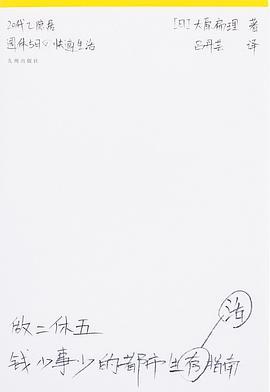 20代で隠居
週休5日の快適生活
九州出版社
[日]大原扁理 著
吕丹芸 译
活
做二休五
钱少事少的都市生存指南